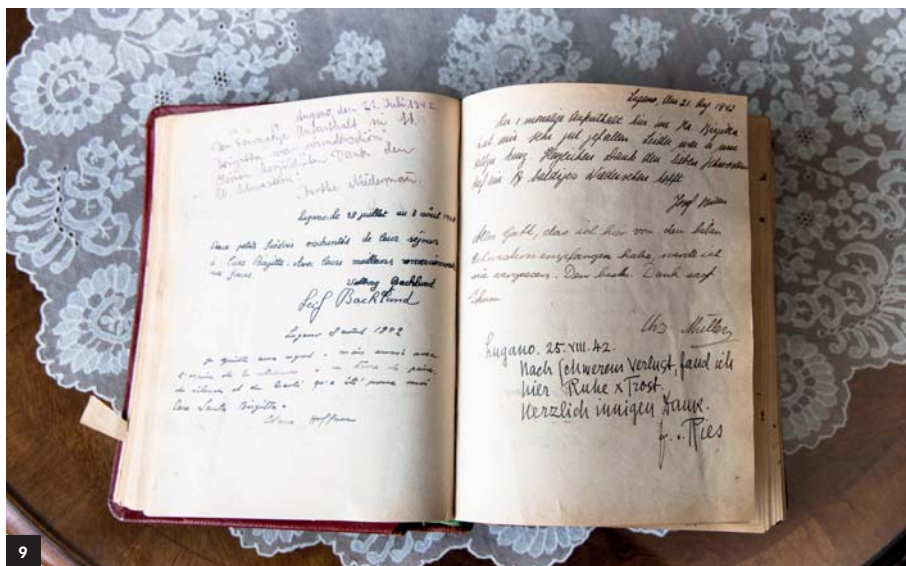 Lugano, den 21. Juli 1942
Aufenthalt in St.
Brigitta war wunderschön
Meinen herzlichsten Dank den
lb. Schwestern!
Niedermann.
Lugano. le 28 juillet au 8 août
Deux petits Suédois enchantés de leur séjour
à Casa Brigitta. Avec leurs meilleurs
Backlund
Leif Backlund
Lugano 8 août 1942
Je quitte avec regret - mais aussi avec
de paix,
de silence et de qu'a été pour moi
Casa Santa Brigitta.
Hoffmann
Lugano, den 21. Aug 1942
Der 1 monatige Aufenthalt hier im Ha Brigitta
hat mir sehr gut gefallen. Leider war er nur
kurz. Herzlichen Dank den lieben Schwestern
auf ein baldiges Wiedersehen hofft
Josef
Alles Gute, das ich hier von den lieben
Schwestern empfangen habe, werde ich
nie vergessen. Den besten Dank sagt
Ihnen
Müller
Lugano. 25. VIII. 42.
Nach schwerem Verlust, fand ich
hier Ruhe x Trost.
Herzlich innigen Dank.
Ries
9